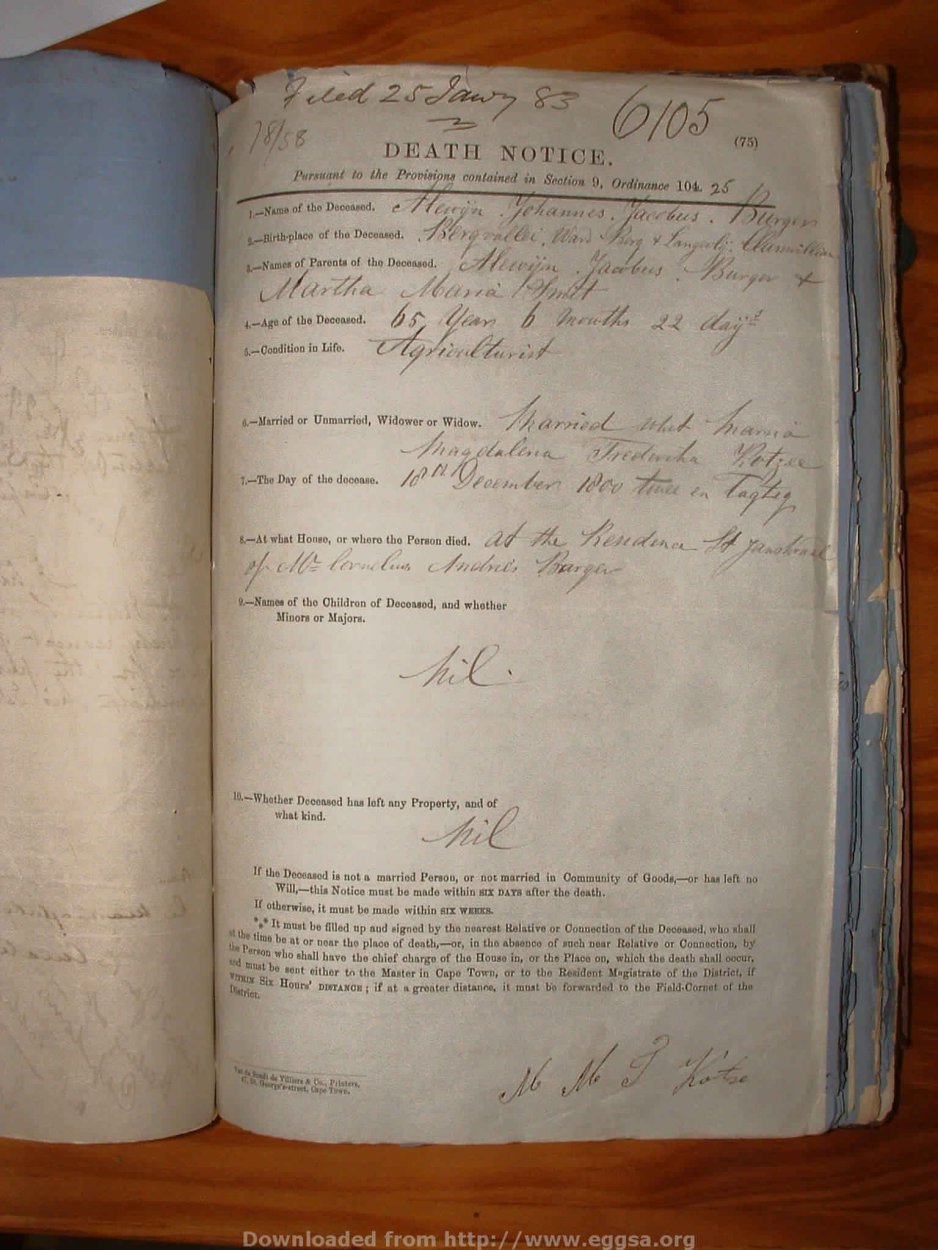 Filed 25 Jany 83
6105
78/58
(75)
DEATH NOTICE.
Pursuant to the Provisions contained in Section 9, Ordinance 104. 25
1.—Name of the Deceased. Alewijn Johannes Jacobus Burger
2.—Birth-place of the Deceased. Bergvallei, Ward Berg & Langevlij Clanwilliam
3.—Names of Parents of the Deceased. Alewijn Jacobus Burger &
Martha Maria Smit
4.—Age of the Deceased. 65 Years 6 Months 22 days
5.—Condition in Life. Agriculturist
6.—Married or Unmarried, Widower or Widow. Married whit Maria
Magdalena Fredericka Kotzee
7.—The Day of the decease. December 1800 twee en Tagtig
8.—At what House, or where the Person died. at the Residence St
of Mr Cornelius Andries Burger
9.—Names of the Children of Deceased, and whether
Minors or Majors.
Nil.
10.—Whether Deceased has left any Property, and of
what kind.
Nil
If the Deceased is not a married Person, or not married in Community of Goods,—or has left no
Will,—this Notice must be made within SIX DAYS after the death.
If otherwise, it must be made within SIX WEEKS.
*** It must be filled up and signed by the nearest Relative or Connection of the Deceased, who shall
at the time be at or near the place of death,—or, in the absence of such near Relative or Connection, by
the Person who shall have the chief charge of the House in, or the Place on, which the death shall occur,
and must be sent either to the Master in Cape Town, or to the Resident Magistrate of the District, if
WITHIN SIX HOURS' DISTANCE; if at a greater distance, it must be forwarded to the Field-Cornet of the
District.
M M F Kotze
Van de Sandt de Villiers & Co., Printers,
47, St. George's-street, Cape Town.
Downloaded from http://www.eggsa.org